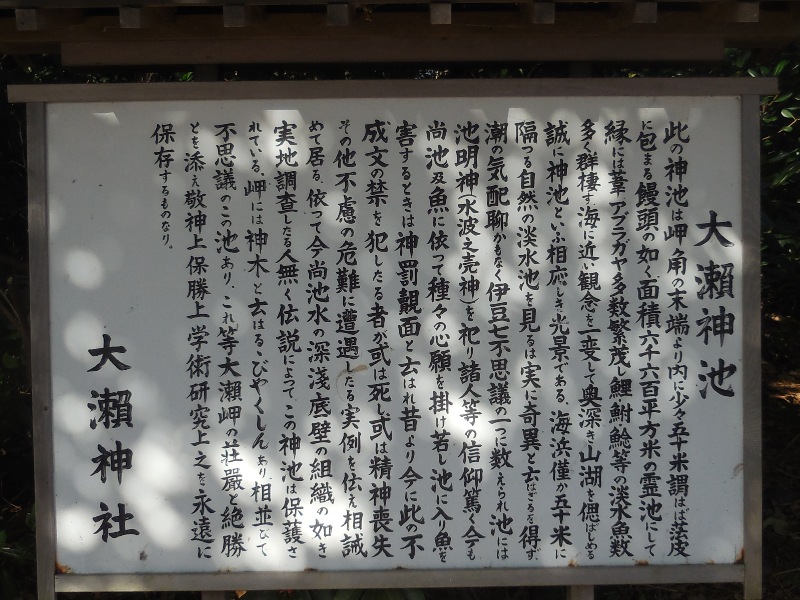 大瀬神池
此の神池は岬角の末端より内に少々五十米謂はば法皮
に包まる饅頭の如く面積六千六百平方米の霊池にして
縁には葦アブラガヤ多数繁茂し鯉鮒鯰等の淡水魚数
多く群棲す海に近い観念を一変して奥深き山湖を偲ばしめる
誠に神池といふ相応しき光景である、海浜僅か五十米に
隔つる自然の淡水池を見るは実に奇異と云はざるを得ず
潮の気配聊かもなく伊豆七不思議の一に数えられ池には
池明神(水波之売神)を祀り詣人等の信仰篤く今も
尚池及魚に依って種々の心願を掛け若し池に入り魚を
害するときは神罰覿面と云はれ昔より今に此の不
成文の禁を犯したる者が或は死し或は精神喪失
その他不慮の危難に遭遇したる実例を伝え相誡
めて居る、依つて今尚池水の深淺底壁の組織の如き
実地調査したる人無く伝説によってこの神池は保護さ
れている、岬には神木と云はるゝびやくしんあり、相並びて
不思議のこの池あり、これ等大瀬岬の荘嚴と絶勝
とを添え敬神上保勝上学術研究上之を永遠に
保存するものなり。
大瀬神社